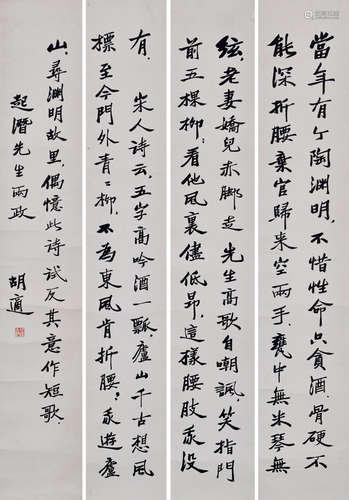 當年有个陶淵明，不惜性命只貪酒，骨硬不
能深折腰，棄官歸來空兩手，甕中無米琴無
絃，老妻嬌兒赤脚走，先生高歌自嘲諷，笑指門
前五棵柳：看他風裏儘低昂，這樣腰肢我没
有。 宋人詩云：五字高吟酒一瓢，廬山千古想風
標，至今門外青青柳，不為東風肯折腰。我遊廬
山，尋淵明故里，偶憶此詩，試反其意作短歌。
起潛先生兩政 胡適